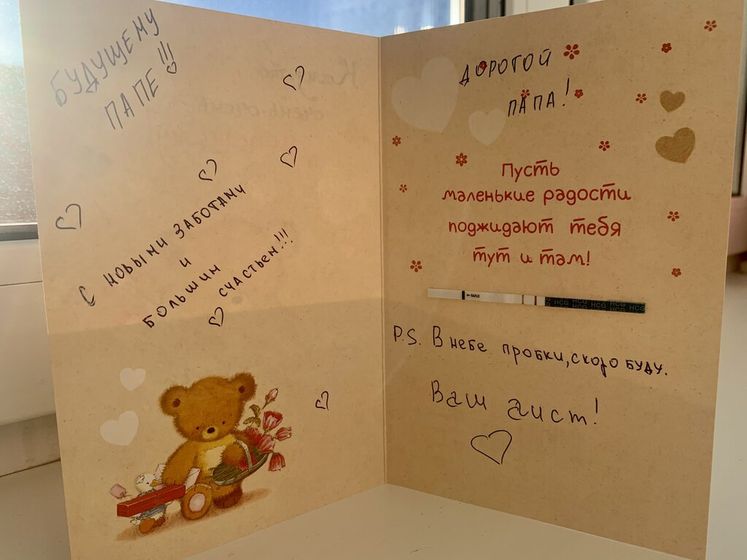 БУДУЩЕМУ
ПАПЕ!!!
С НОВЫМИ ЗАБОТАМИ
И
БОЛЬШИМ
СЧАСТЬЕМ!!!
ДОРОГОЙ
ПАПА!
Пусть
маленькие радости
поджидают тебя
тут и там!
MAX
HCG HCG HCG
P.S. В небе пробки, скоро буду.
Ваш аист!